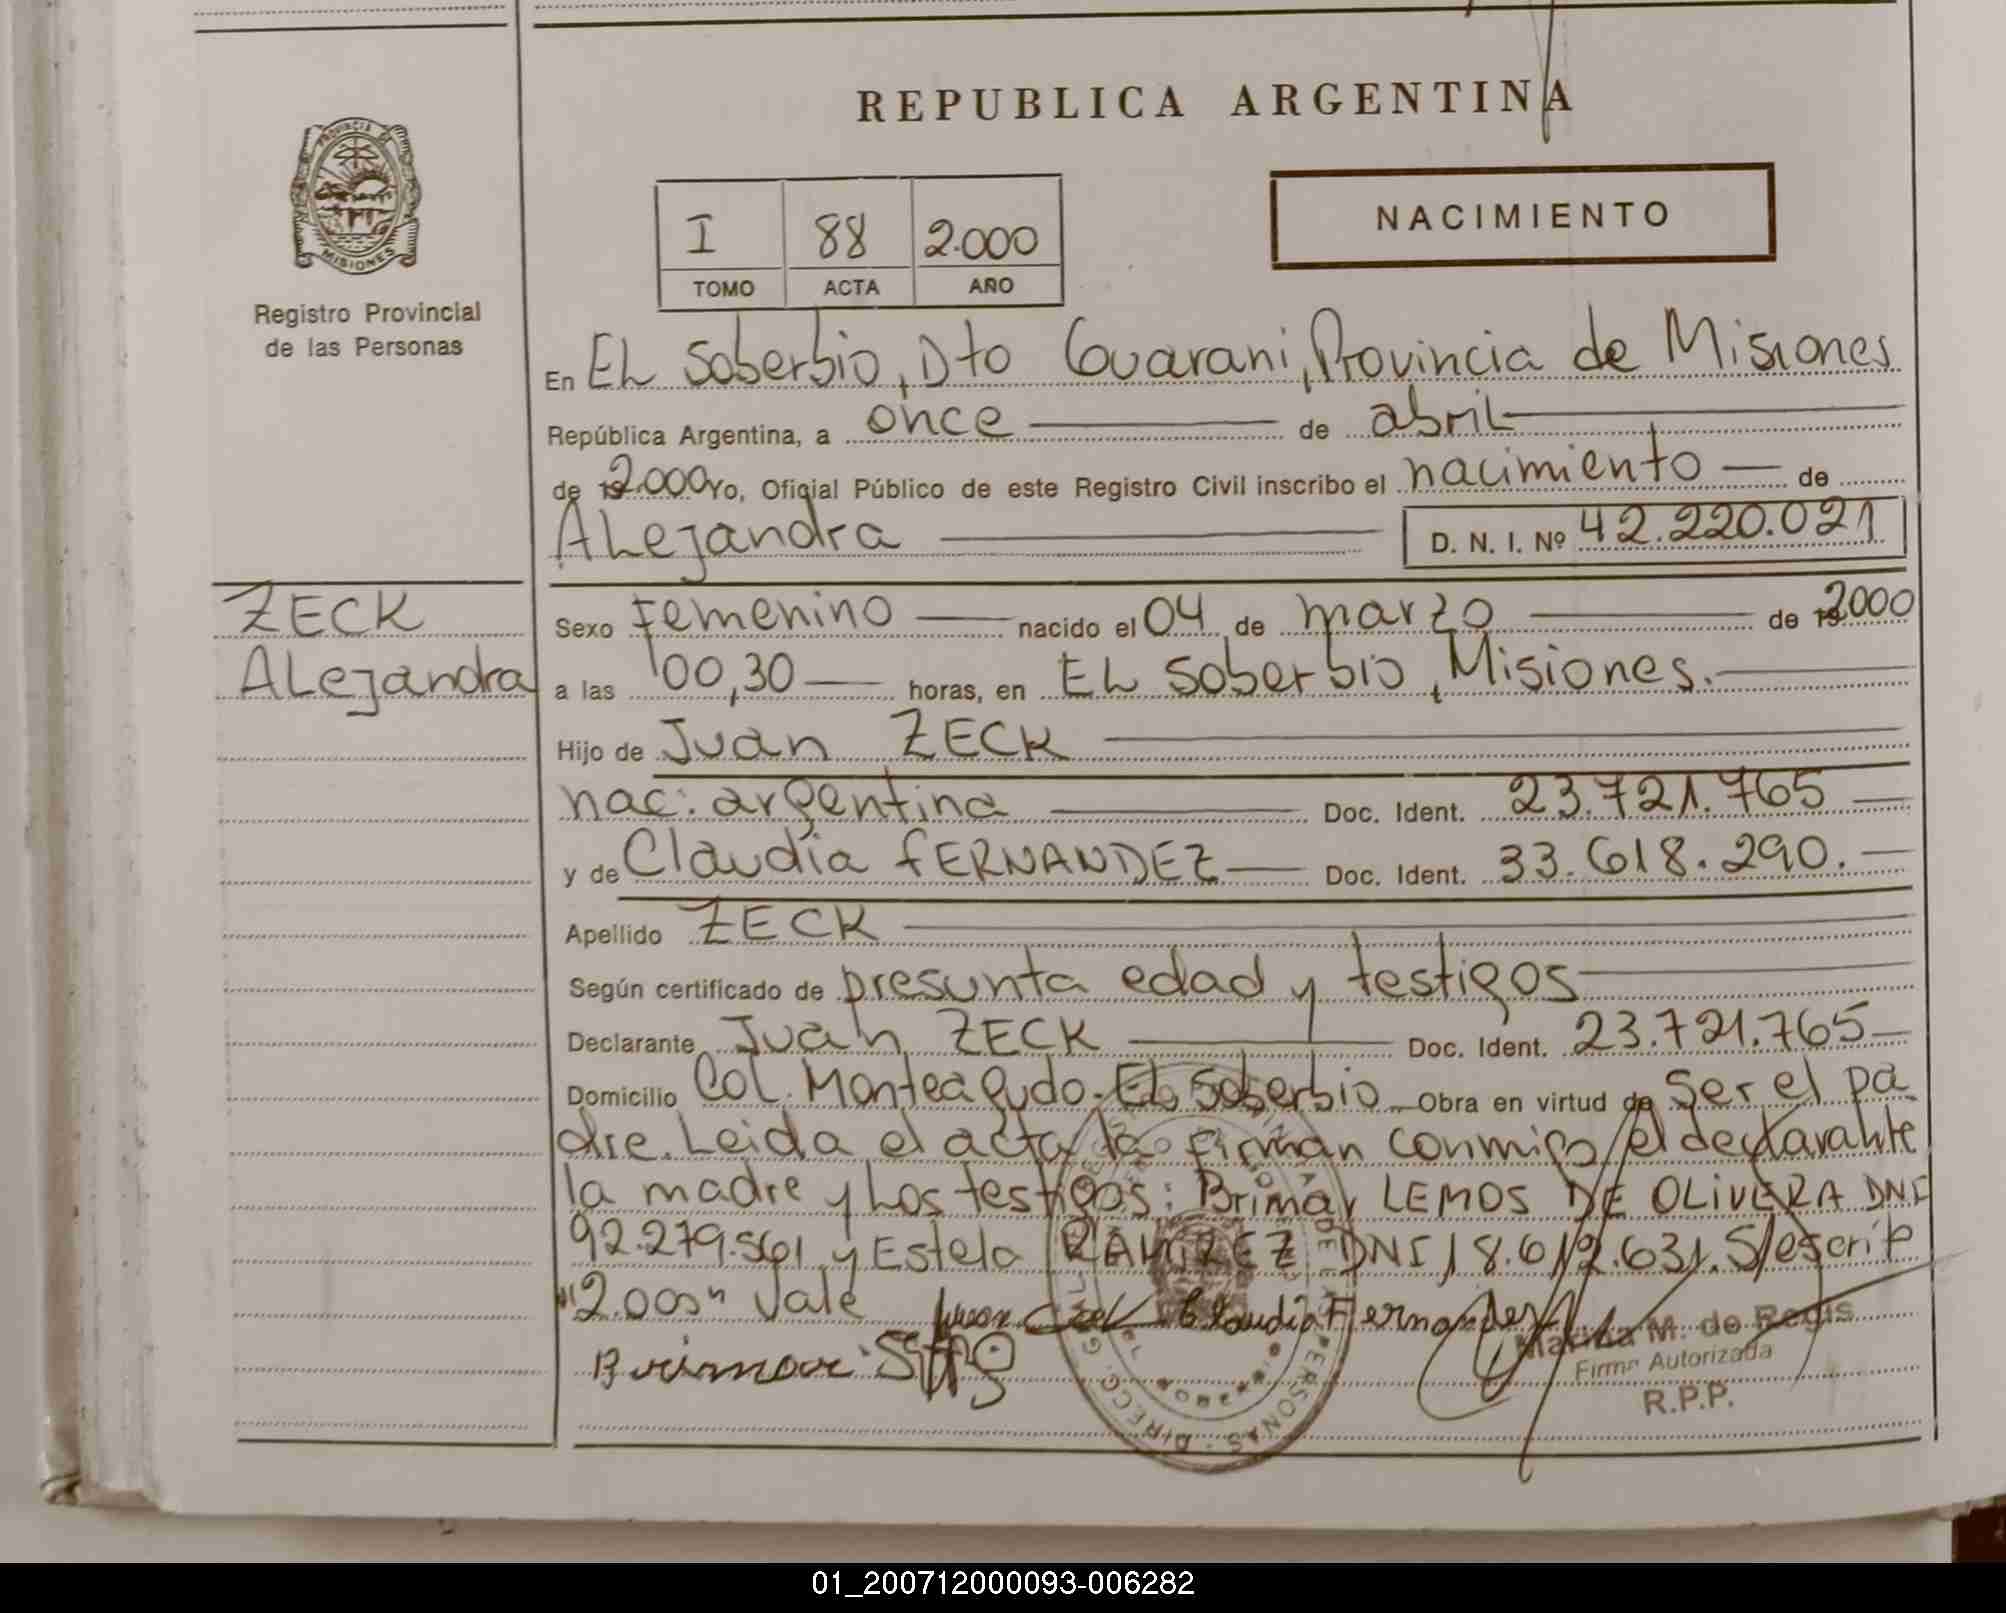 REPUBLICA ARGENTINA
PROVINCIA DE
MISIONES
Registro Provincial
de las Personas
I 88 2.000
TOMO ACTA AÑO
NACIMIENTO
En EL Soberbio, Dto Guarani, Provincia de Misiones
República Argentina, a once de abril
de 2.000 Yo, Oficial Público de este Registro Civil inscribo el nacimiento de
Alejandra D. N. I. Nº 42.220.021
ZECK
Alejandra
Sexo femenino nacido el 04 de marzo de 2000
a las 00,30 horas, en EL Soberbio, Misiones.
Hijo de Juan ZECK
nac: argentina Doc. Ident. 23.721.765
y de Claudia FERNANDEZ Doc. Ident. 33.618.290.
Apellido ZECK
Según certificado de presunta edad y testigos
Declarante Juan ZECK Doc. Ident. 23.721.765
Domicilio Col. Monteagudo. EL Soberbio Obra en virtud de Ser el pa
dre. Leida el acta la firman conmigo el declarante
la madre y Los testigos: Brimar LEMOS DE OLIVERA DNI
92.279.561 y Estela RAMIREZ DNI 18.612.631. S/escrito
"2.000" Vale Juan Zeck Claudia Fernandez
Brimar
Marina M. de Regis
Firma Autorizada
R.P.P.
01_200712000093-006282